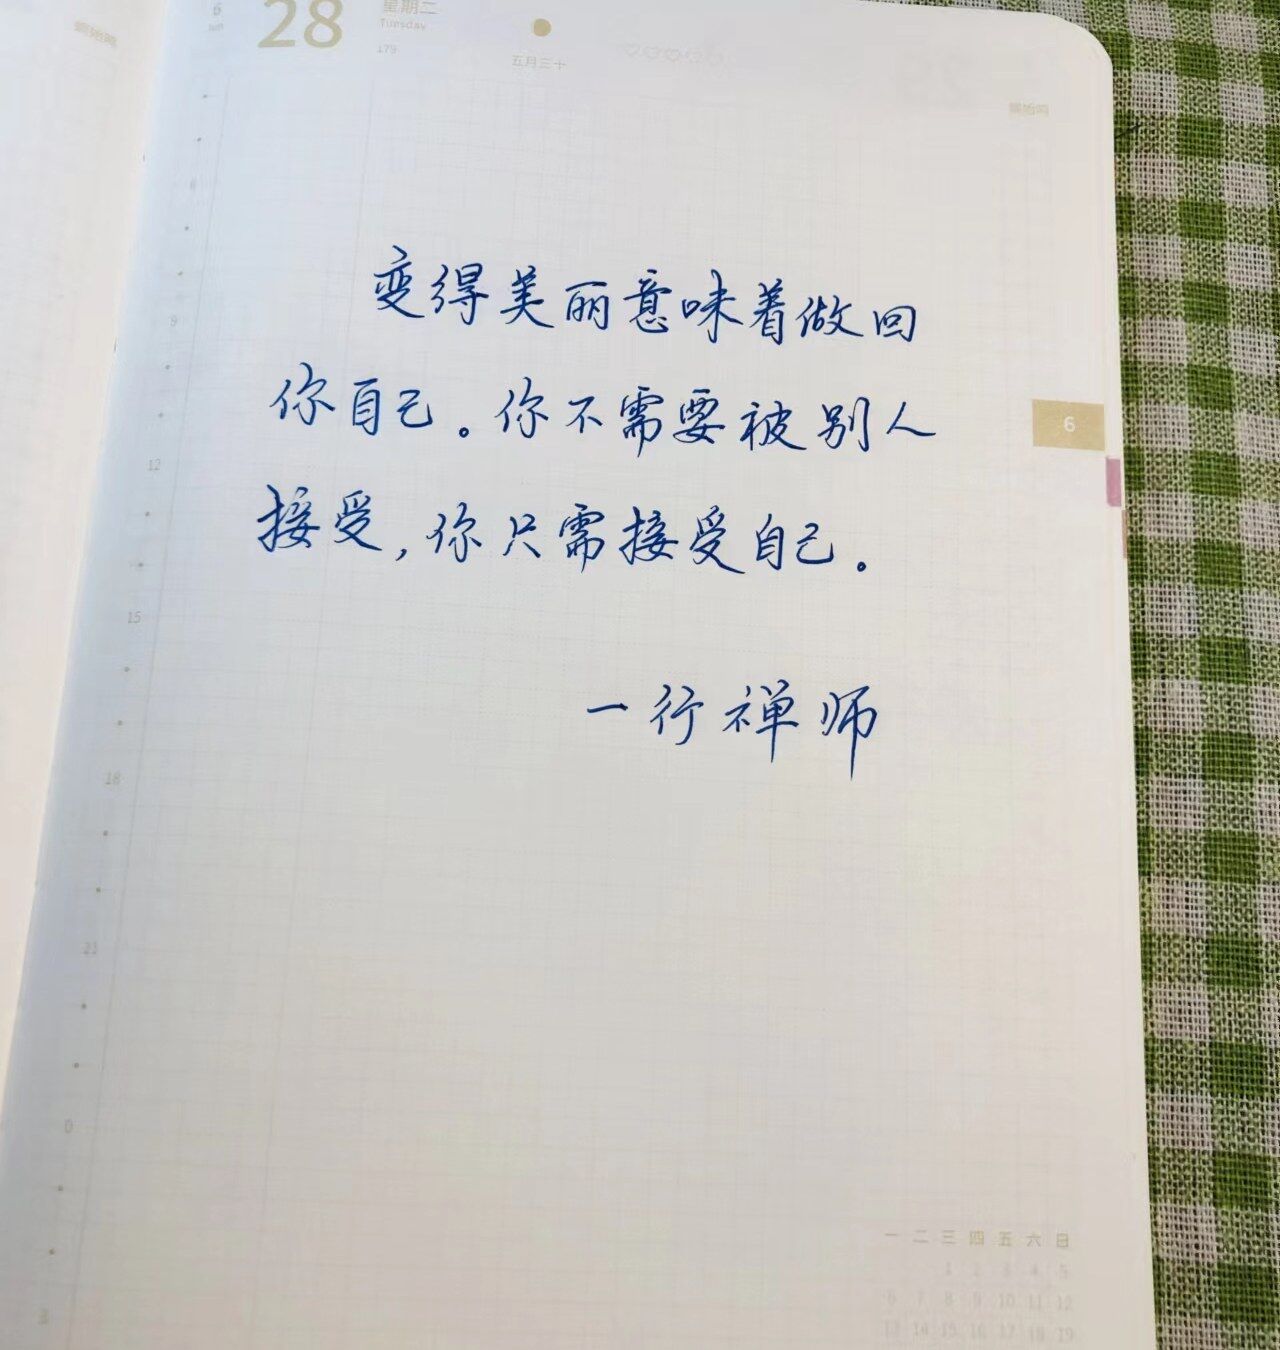 6
Jun
28
星期二
Tuesday
179
五月三十
变得美丽意味着做回
你自己。你不需要被别人
接受,你只需接受自己。
一行禅师
6
9
12
15
18
21
0
3
一 二 三 四 五 六 日
1 2 3 4 5
6 7 8 9 10 11 12
13 14 15 16 17 18 19